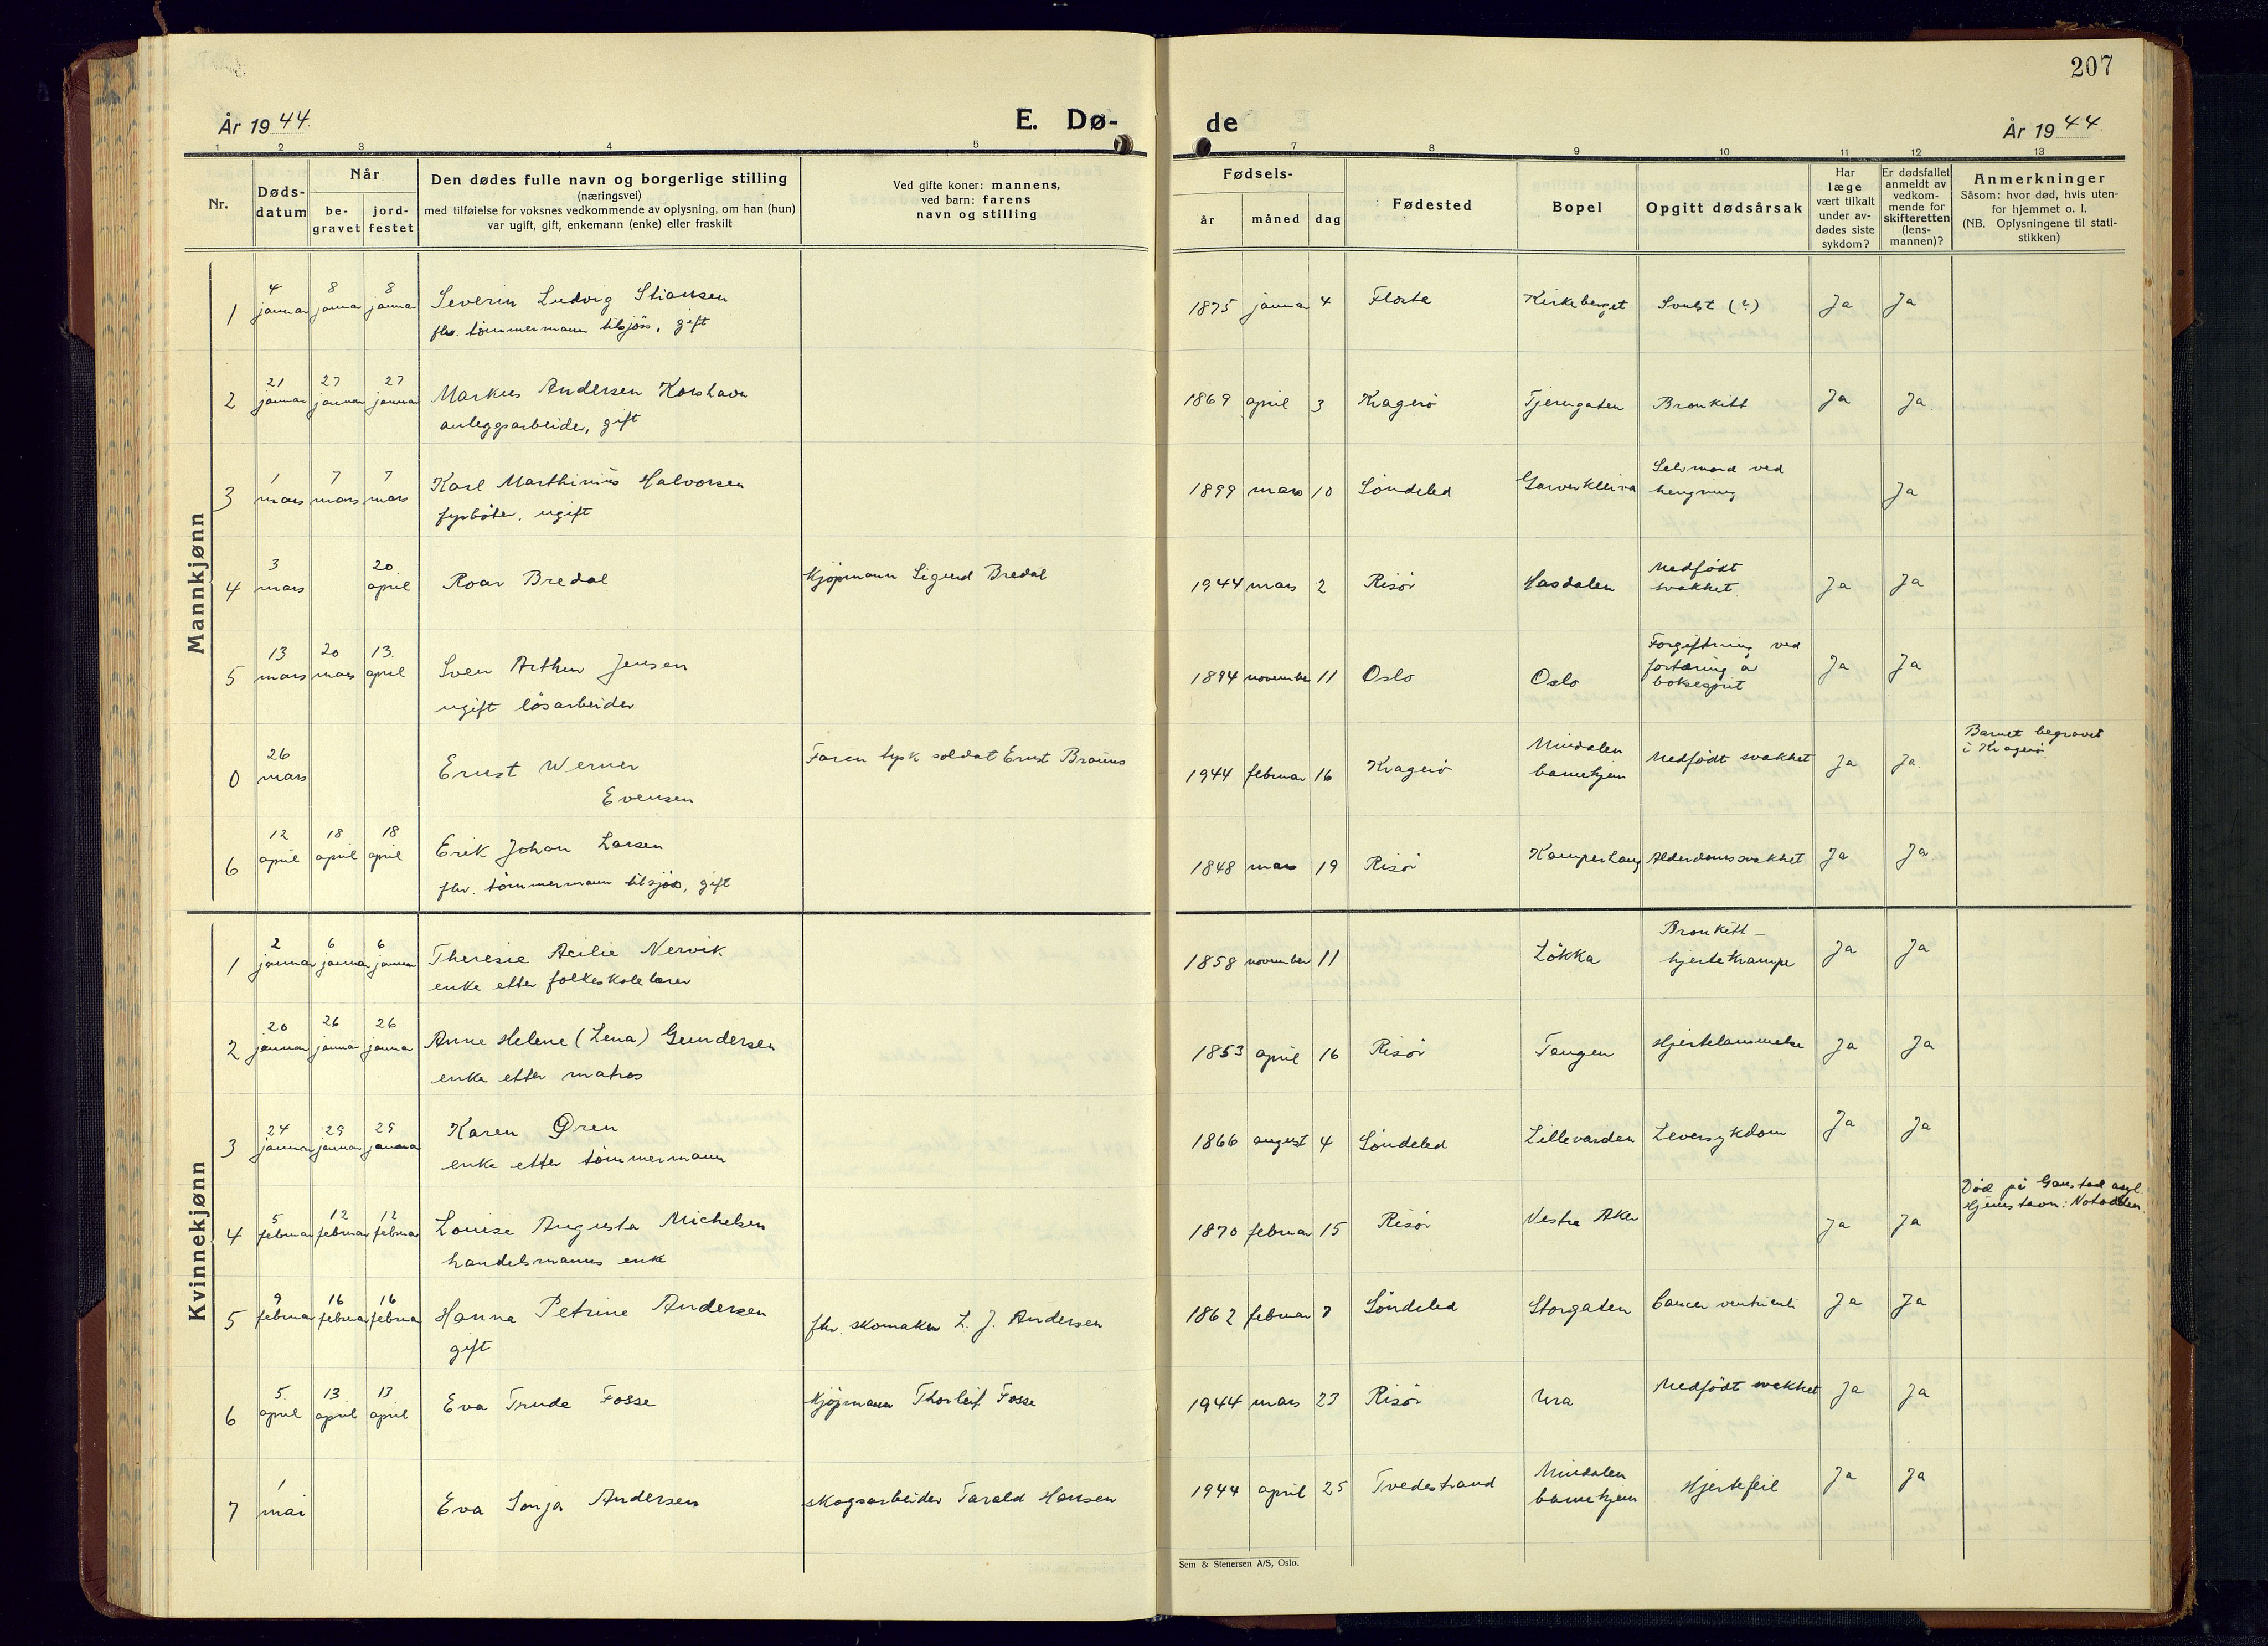 207
År 1944.
E. Dø-
de
År 1944.
1 2 3 4 5 7 8 9 10 11 12 13
Nr.
Døds-
datum
Når
be-
gravet
jord-
festet
Den dødes fulle navn og borgerlige stilling
(næringsvei)
med tilføielse for voksnes vedkommende av oplysning, om han (hun)
var ugift, gift, enkemann (enke) eller fraskilt
Ved gifte koner: mannens,
ved barn: farens
navn og stilling
Fødsels-
år måned dag
Fødested
Bopel
Opgitt dødsårsak
Har
læge
vært tilkalt
under av-
dødes siste
sykdom?
Er dødsfallet
anmeldt av
vedkom-
mende for
skifteretten
(lens-
mannen)?
Anmerkninger
Såsom: hvor død, hvis uten-
for hjemmet o. l.
(NB. Oplysningene til stati-
stikken)
Mannkjønn
4 8 8
1 januar januar januar Severin Ludvig Stiansen 1875 januar 4 Flosta Kirkeberget Svulst (?) Ja Ja
fhv. tømmermann tilsjøs, gift
21 27 27
2 januar januar januar Markus Andersen Korshavn 1869 april 3 Kragerö Tjerngaten Bronkitt Ja Ja
anleggsarbeider, gift
1 7 7
3 mars mars mars Karl Marthinius Halvorsen 1899 mars 10 Söndeled Garverkleiva Selvmord ved
hengning Ja
fyrböter, ugift
3 20
4 mars april Roar Bredal Kjöpmann Sigurd Bredal 1944 mars 2 Risör Hasdalen Medfödt
svakhet Ja Ja
13 20 13.
5 mars mars april Sven Arthur Jensen 1894 november 11 Oslo Oslo Forgiftning ved
fortæring av
boksesprit Ja Ja
ugift lösarbeider
26
0 mars Ernst Werner
Evensen Faren tysk soldat Ernst 1944 februar 16 Kragerö Mindalen
barnehjem Medfödt svakhet Ja Ja Barnet begravet
i Kragerö
12 18 18
6 april april april Erik Johan Larsen 1848 mars 19 Risör Kamperhaug Alderdomssvakhet Ja Ja
fhv. tömmermann tilsjøs, gift
Kvinnekjønn
2 6 6
1 januar januar januar Theresie Nervik 1858 november 11 Lökka Bronkitt -
hjertekrampe Ja Ja
enke etter folkeskolelærer
20 26 26
2 januar januar januar Anne Helene (Lena) Gundersen 1853 april 16 Risör Tangen Hjertelammelse Ja Ja
enke etter matros
24 29 29
3 januar januar januar Karen Øren 1866 august 4 Söndeled Lillevarden Leversykdom Ja Ja
enke etter tömmermann
5 12 12
4 februar februar februar Louise Augusta Michelsen 1870 februar 15 Risör Vestre Aker Ja Ja Död på Gaustad asyl.
Hjemstavn: Notodden.
handelsmanns enke
9 16 16
5 februar februar februar Hanna Petrine Andersen fhv. skomaker L. J. Andersen 1862 februar 7 Söndeled Storgaten Cancer ventriculi Ja Ja
gift
5 13 13
6 april april april Eva Trude Fosse Kjöpmann Thorleif Fosse 1944 mars 23 Risör Ura Medfödt svakhet Ja Ja
1
7 mai Eva Sonja Andersen skogsarbeider Tarald Hansen 1944 april 25 Tvedestrand Mindalen
barnehjem Hjertefeil Ja Ja
Sem & Stenersen A/S, Oslo.